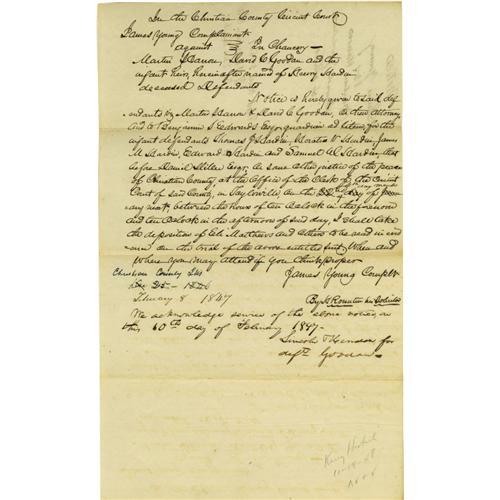 In the Christian County Circuit Court
James Young Complainant
against } In Chancery
Martin , David C Goodan and the
infant heirs hereinafter named of Henry Hardin
deceased Defendants
Notice is hereby given to said def
endants to Martin & David C Goodan, or their attorney
and to Benjamin S Edwards Esqr guardian ad litem, for the
infant defendants Thomas J Hardin, Horatio W Hardin, James
M Hardin, Edward Hardin and Samuel W Hardin, that
before Daniel Miller Esqr, or some other justice of the peace
of Christian County at the Office of the Clerk of the Circuit
Court of said County, in Taylorville, on the day of
next, between the hours of ten Oclock in the forenoon
and ten Oclock in the afternoon of said day, I shall take
the deposition of Eli Matthews and others to be read in evid
ence on the trial of the above entitled suit, When and
Where you may attend if you think proper
Christian County Ills
James Young Complt
Dec 25 1846
February 8 1847
By his Solicitor
We acknowledge service of the above notice, on
this 10th day of February 1847.
Lincoln & Herndon for
deft Goodan